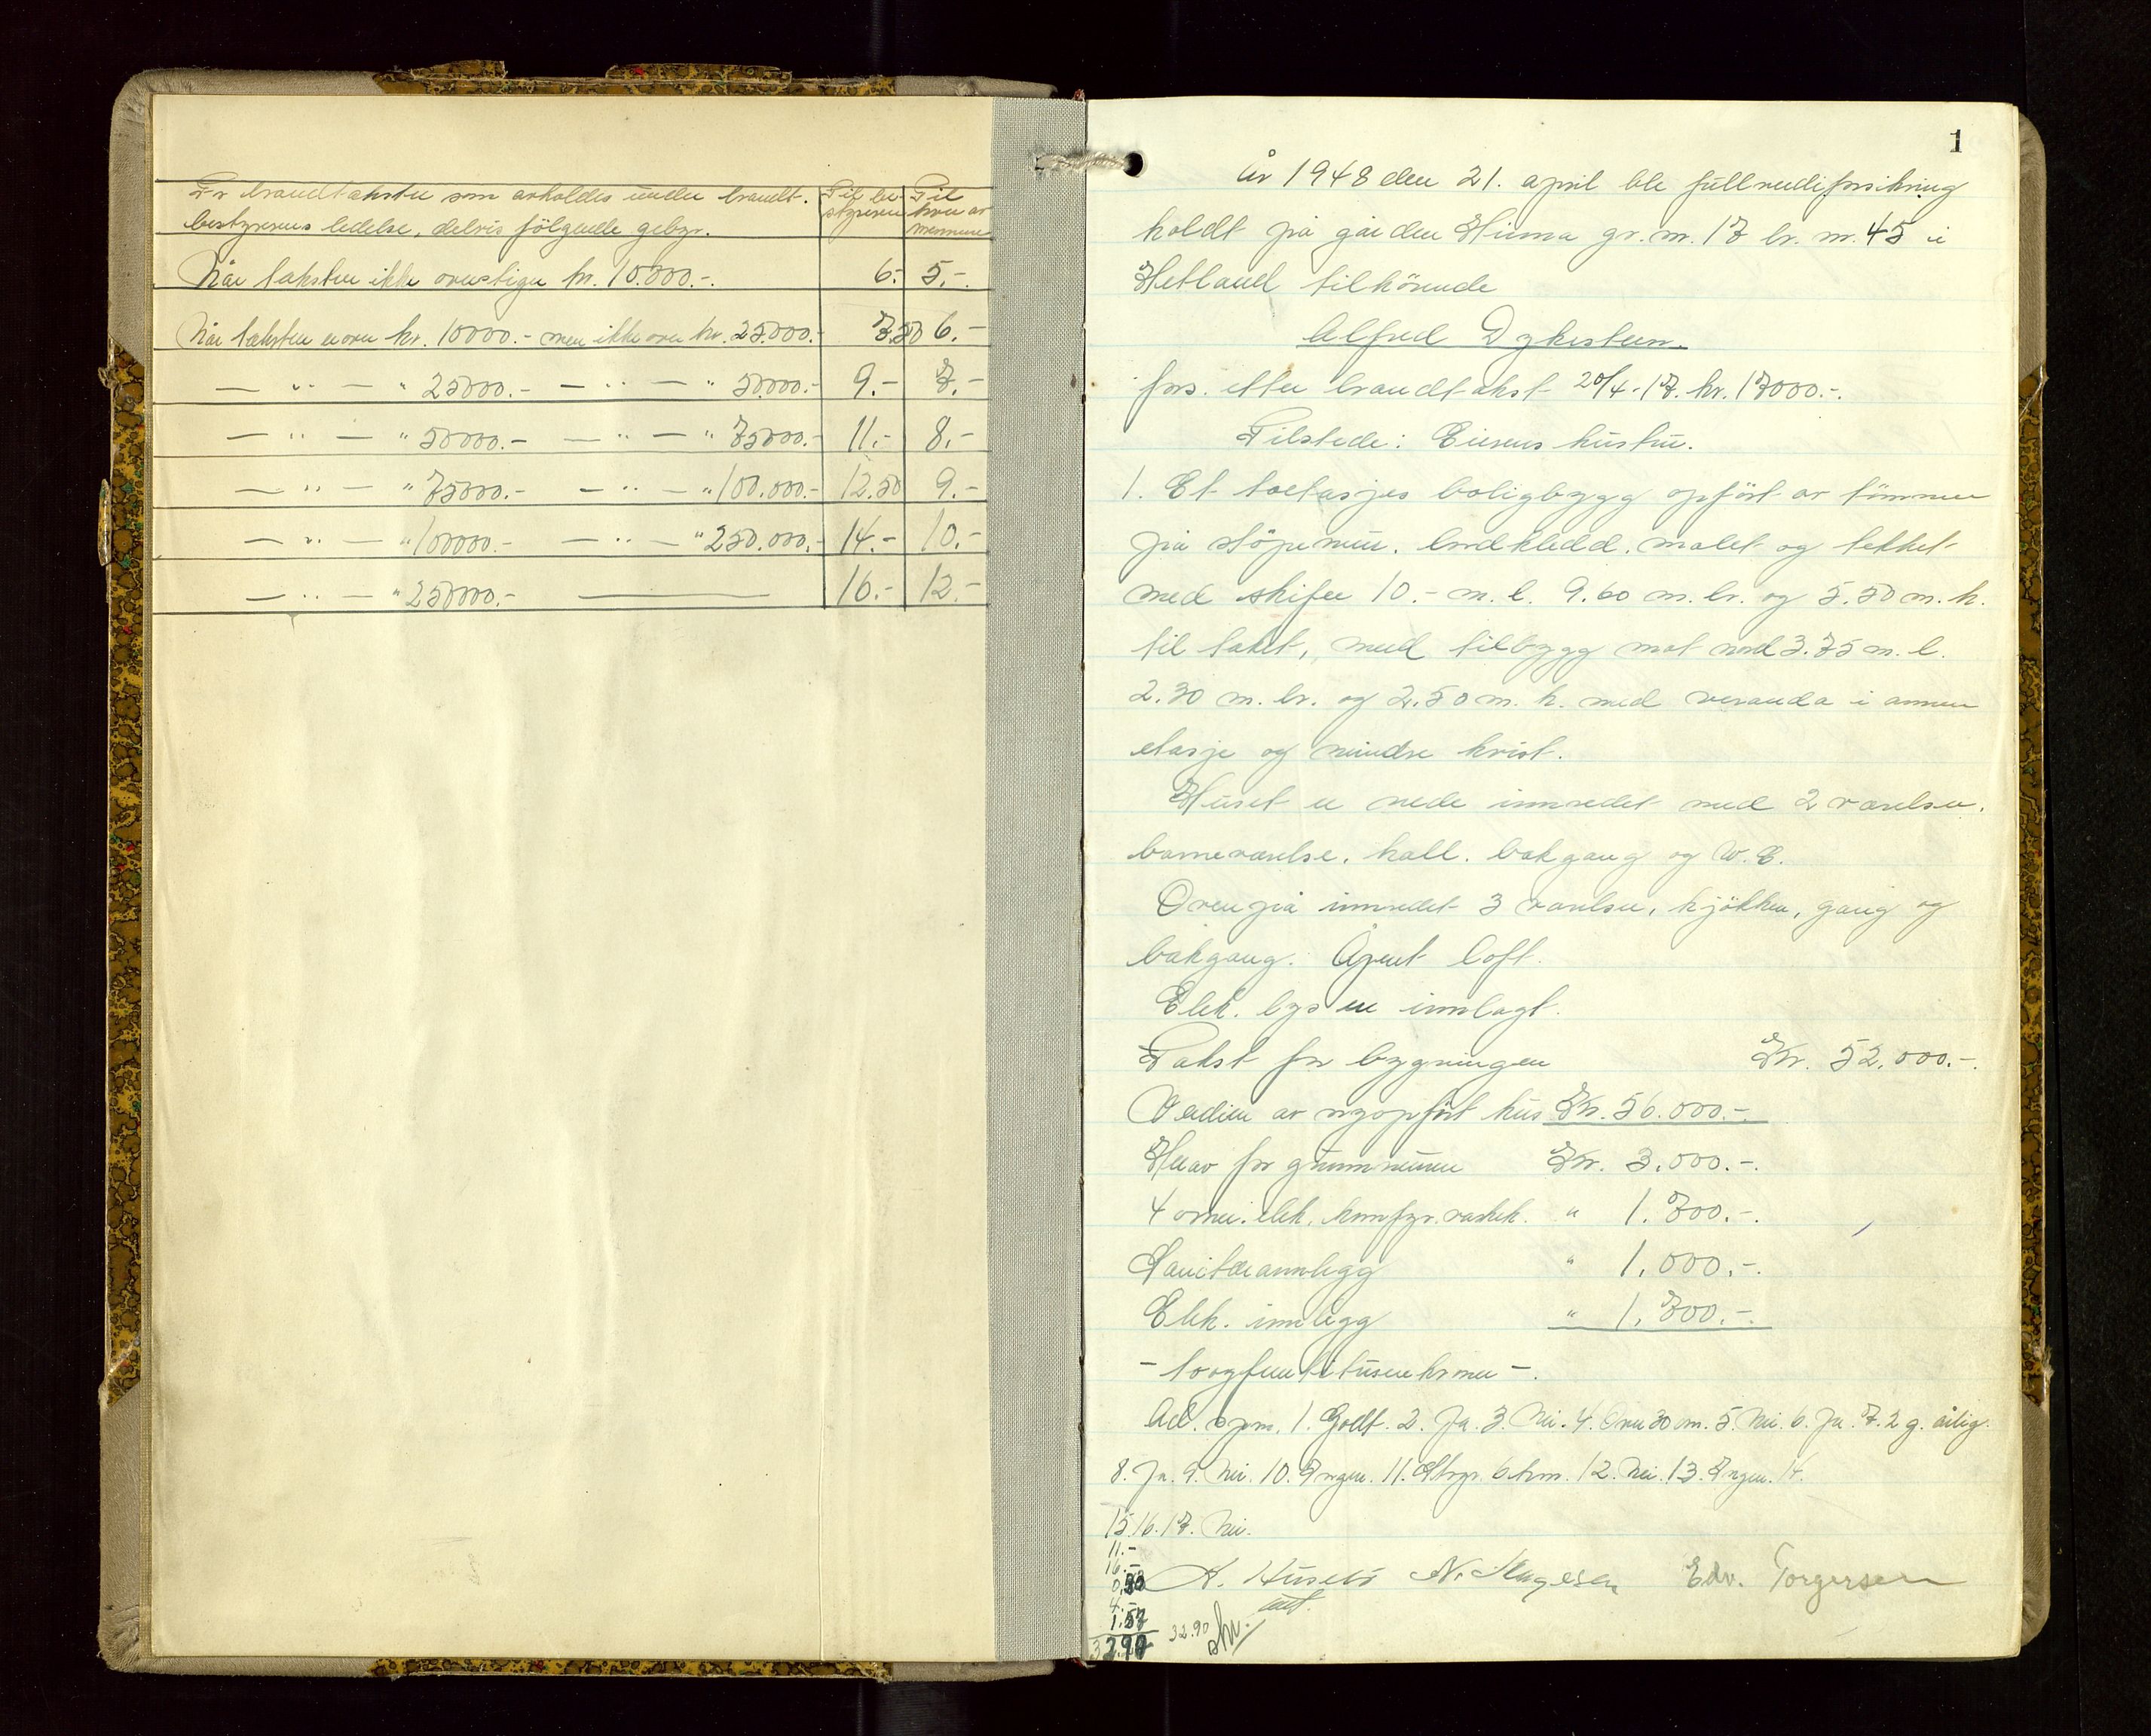 For brandtakster som avholdes under brandt- Til be- Til
bestyrerens ledelse, delvis følgende gebyr. styreren hver av
mennene
Når taksten ikke overstiger kr. 10.000.- 6.- 5.-
Når taksten er over kr. 10000.- men ikke over kr. 25.000.- 7.50 6.-
— " — " 25000.- — " — " 50.000.- 9.- 7.-
— " — " 50000.- — " — " 75000.- 11.- 8.-
— " — " 75000.- — " — " 100.000.- 12.50 9.-
— " — " 100000.- — " — " 250.000.- 14.- 10.-
— " — " 250000.- — 16.- 12.-
1
År 1948 den 21. april ble fullverdiforsikring
holdt på gården Hinna gr. nr. 17 br. nr. 45 i
Hetland tilhörende
Alfred Dykesteen.
fors. etter brandtakst 20/4-17. kr. 17000.-.
Tilstede: Eierens hustru.
1. Et toetasjes boligbygg opfört av tömmer
på stöpemur. bordkledd. malet og tekket
med skifer 10.- m. l. 9.60 m. br. og 5.50 m. h.
til taket, med tilbygg mot nord 3.75 m. l.
2.30 m. br. og 2.50 m. h. med veranda i annen
etasje og mindre kvist.
Huset er nede innredet med 2 værelser,
barneværelse. hall. bakgang og W. C.
Ovenpå innredet 3 værelser, kjökken, gang og
bakgang. Åpent loft.
Elek. lys er innlagt.
Takst for bygningen Kr. 52.000.-.
Verdien av nyopfört hus Kr. 56.000.-.
Herav for grunnmuren Kr. 3.000.-.
4 ovner. elek. komfyr. vaskek. " 1.700.-.
Sanitæranlegg " 1.000.-.
Elek. innlegg " 1.700.-.
- toogfemtitusenkroner -.
Ad. spm. 1. Godt. 2. Ja. 3. Nei. 4. Over 30 m. 5. Nei. 6. Ja. 7. 2 g. årlig.
8. Ja. 9. Nei. 10. Ingen. 11. Strgr. 6 hm. 12. Nei. 13. Ingen. 14.
15. 16. 17. Nei.
11.-
16.-
0,30
4.-
1.57
32.90 32.90
A. Husebö Edv. Torgersen